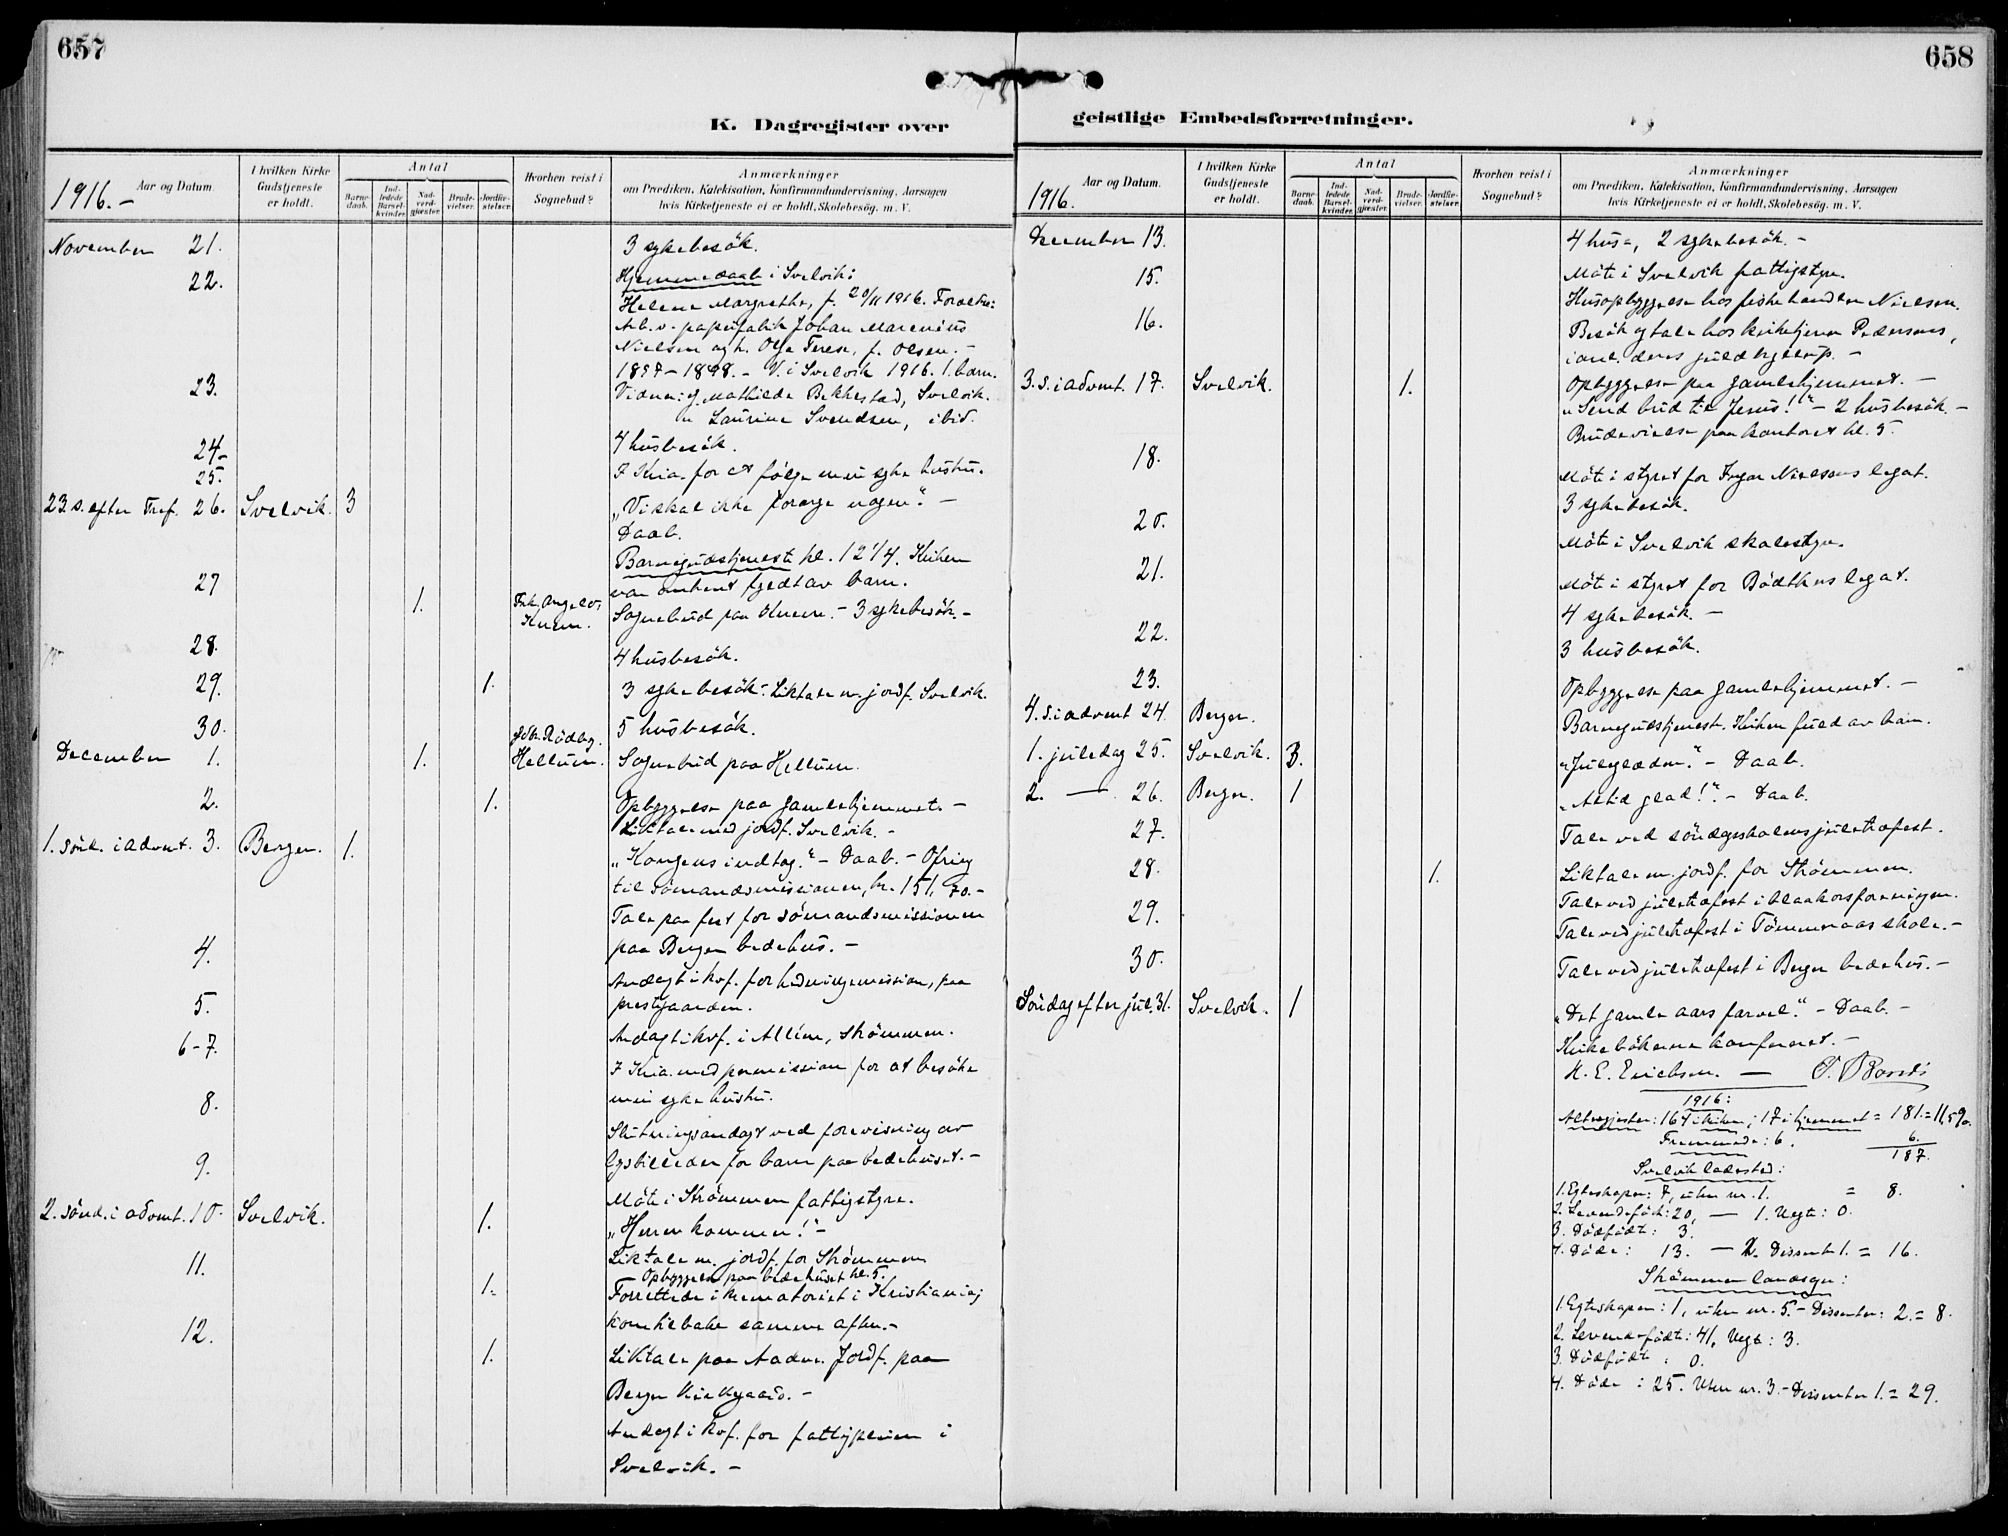 657
K. Dagregister over
1916. –
Aar og Datum.
I hvilken Kirke Gudstjeneste er holdt.
Antal
Barnedaab.
Indledede Barselkvinder.
Nadverdgjæster.
Brudevielser.
Jordfæstelser.
Hvorhen reist i Sognebud?
Anmærkninger
om Prædiken, Katekisation, Konfirmandundervisning, Aarsagen
hvis Kirketjeneste ei er holdt, Skolebesög. m. V.
November 21. 3 sykebesök.
22. Hjemmedaab i Svelvik:
Helene Margrethe, f. 20/11 1916. Forældre:
Arb. v. papirfabrik Johan Marenius
Nielsen og h. Olga Terese, f. Olsen. –
1897 – 1898. – V. i Svelvik 1916. 1. barn.
23. Vidner: Mathilde Bekkestad, Svelvik.
Laurine Svendsen, ibid.
24. 4 husbesök.
25. I Kria. for at følge min syke hustru.
23. s. efter Tref. 26. Svelvik. 3 „Vi skal ikke forarge nogen“. –
Daab.
Barnegudstjeneste kl. 12 1/4. Kirken
var omtrent fyldt av barn.
27 1. Knem. Sognebud paa Knem. – 3 sykebesök. –
28. 4 husbesök.
29. 1. 3 sykebesök. Liktale m. jordf. Svelvik.
30. 5 husbesök.
December 1. 1. Hellum. Sognebud paa Hellum.
2. 1. Opbyggelse paa Gamlehjemmet. –
Liktale med jordf. Svelvik. –
1. sönd. i advent. 3. Berger. 1. „Kongens indtog.“ – Daab. – Ofring
til sömandsmissionen, kr. 151,70. –
Tale paa fest for sömandsmissionen
paa Berger bedehus. –
4. Andagt i kvf. for hedningemission, paa
prestgaarden.
5. Andagt i kvf. i Allien, Strömmen.
6–7. I Kria. med permission for at besöke
min syke hustru.
8. Slutningsandagt ved forevisning av
lysbilleder for barn paa bedehuset. –
9. Möte i Strömmen fattigstyre.
2. sönd. i advent. 10. Svelvik. 1. „Herren kommer!“ –
Liktale m. jordf. for Strömmen
Opbyggelse paa bedehuset kl. 5.
11. 1. Forrettede i krematoriet i Kristiania;
kom tilbake samme aften. –
12. 1. Liktale paa Jordf. paa
Berger Kirkegaard. –
Andagt i kvf. for fattigpleien i
Svelvik. –
658
geistlige Embedsforretninger.
1916.
Aar og Datum.
I hvilken Kirke Gudstjeneste er holdt.
Antal
Barnedaab.
Indledede Barselkvinder.
Nadverdgjæster.
Brudevielser.
Jordfæstelser.
Hvorhen reist i Sognebud?
Anmærkninger
om Prædiken, Katekisation, Konfirmandundervisning, Aarsagen
hvis Kirketjeneste ei er holdt, Skolebesög. m. V.
December 13. 4 hus-, 2 sykebesök. –
15. Möte i Svelvik fattigstyre.
Husopbyggelse hos fiskehandler Nielsen.
16. Besök og tale hos kirketjener Pedersens,
i anl. deres guldbryllup. –
Opbyggelse paa Gamlehjemmet. –
3. s. i advent. 17. Svelvik. 1. „Send bud til Jesus!“ – 2 husbesök. –
Brudevielse paa kontoret kl. 5.
18. Möte i styret for Nielsens legat.
3 sykebesök.
20. Möte i Svelvik skolestyre.
21. Möte i styret for Bödtkers legat.
4 sykebesök. –
22. 3 husbesök.
23. Opbyggelse paa Gamlehjemmet. –
4. s. i advent 24. Berger. Barnegudstjeneste. Kirken fuld av barn.
1. juledag 25. Svelvik. 3. „Juleglæden“. – Daab.
2. — 26. Berger. 1 „Altid glad!“ – Daab.
27. Tale ved söndagsskolens juletræfest.
28. 1. Liktale m. jordf. for Strömmen.
Tale ved juletræfest i blaakorsforeningen.
29. Tale ved juletræfest i Tömmeraas skole. –
30. Tale ved juletræfest i Berger bedehus. –
Söndag efter jul. 31. Svelvik. 1 „Det gamle aars farvel.“ – Daab. –
Kirkebökerne konfereret. –
K. E. Erichsen. —
1916:
Altergjester: 164 i kirken; 17 i hjemmet = 181. = 11,59
Fremmede: 6. 6.
187.
Svelvik ladested:
1. Egteskaper: 7, uten nr. 1. = 8.
2. Levendefödt: 20, — 1. Uegt: 0.
3. Dödfödt: 3.
4. Döde: 13. — 2. Dissent. 1. = 16.
Strömmen landsogn:
1. Egteskaper: 1, uten nr. 5. – Dissenter: 2. = 8.
2. Levendefödt: 41, Uegt: 3.
3. Dödfödt: 0.
4. Döde: 25. Uten nr. 3. – Dissenter 1. = 29.